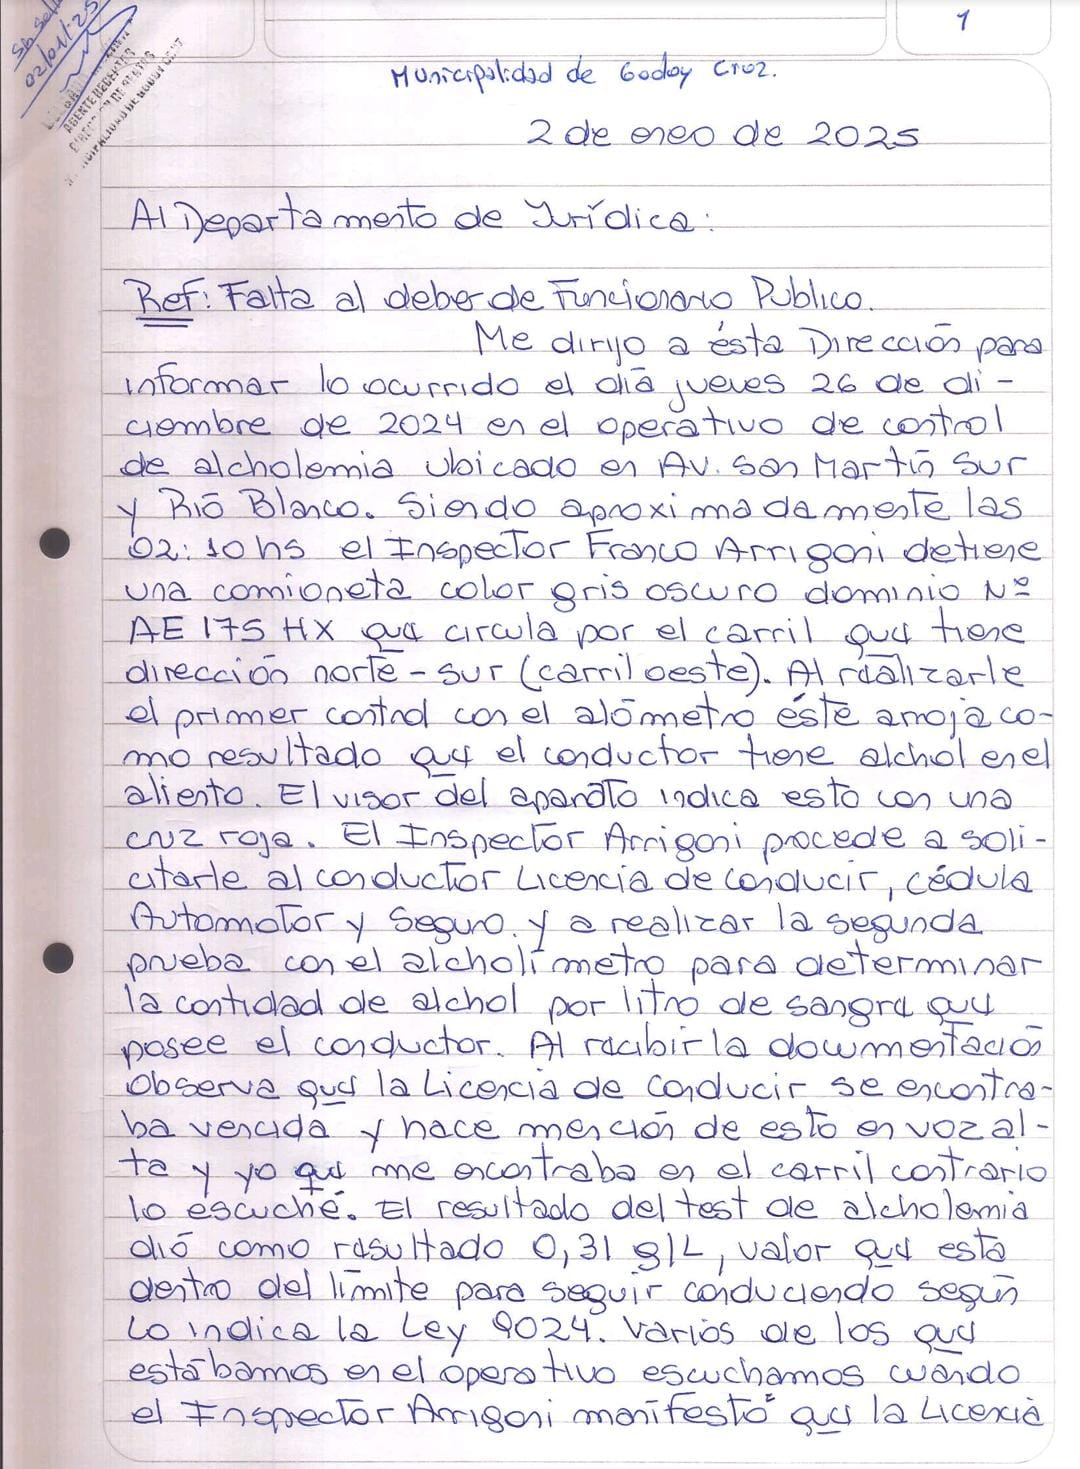 1
02/01/25
AGENTE RECEPTOR
Municipalidad de Godoy Cruz.
2 de eneo de 2025
Al Departamento de Jurídica:
Ref: Falta al deber de Funcionario Público.
Me dirijo a ésta Dirección para
informar lo ocurrido el día jueves 26 de di-
ciembre de 2024 en el operativo de control
de alcholemia ubicado en Av. San Martín Sur
y Río Blanco. Siendo aproximadamente las
02:10 hs el Inspector Franco Arrigoni detiene
una camioneta color gris oscuro dominio Nº
AE 175 HX que circula por el carril que tiene
dirección norte - sur (carril oeste). Al realizarle
el primer control con el alómetro éste arroja co-
mo resultado que el conductor tiene alchol en el
aliento. El visor del aparato indica esto con una
cruz roja. El Inspector Arrigoni procede a soli-
citarle al conductor Licencia de conducir, cédula
Automotor y Seguro. y a realizar la segunda
prueba con el alcholímetro para determinar
la cantidad de alchol por litro de sangre que
posee el conductor. Al recibir la documentación
observa que la Licencia de conducir se encontra-
ba vencida y hace mención de esto en voz al-
ta y yo que me encontraba en el carril contrario
lo escuché. El resultado del test de alcholemia
dió como resultado 0,31 g/L, valor que está
dentro del límite para seguir conduciendo según
lo indica la Ley 9024. Varios de los que
estábamos en el operativo escuchamos cuando
el Inspector Arrigoni manifestó que la Licencia